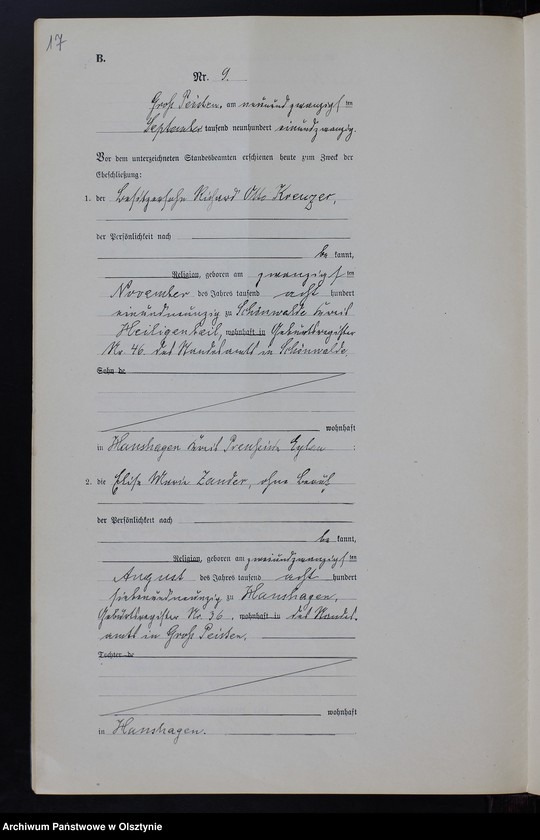 17
B.
Nr. 9.
Groß Peisten, am neunundzwanzigsten
September tausend neunhundert einundzwanzig.
Vor dem unterzeichneten Standesbeamten erschienen heute zum Zweck der
Eheschließung:
1. der Besitzersohn Richard Otto Kreuzer,
der Persönlichkeit nach
be kannt,
Religion, geboren am zwanzigsten
November des Jahres tausend acht hundert
einundneunzig zu Schönwalde Kreis
Heiligenbeil, wohnhaft in Geburtsregister
No. 46 des Standesamts in Schönwalde,
Sohn de
wohnhaft
in Hanshagen Kreis Preußisch Eylau ;
2. die Elise Marie Zander, ohne Beruf
der Persönlichkeit nach
be kannt,
Religion, geboren am zweiundzwanzigsten
August des Jahres tausend acht hundert
siebenundneunzig zu Hanshagen,
Geburtsregister Nr. 36, wohnhaft in des Standes-
amts in Groß Peisten,
Tochter de
wohnhaft
in Hanshagen.
Archiwum Państwowe w Olsztynie